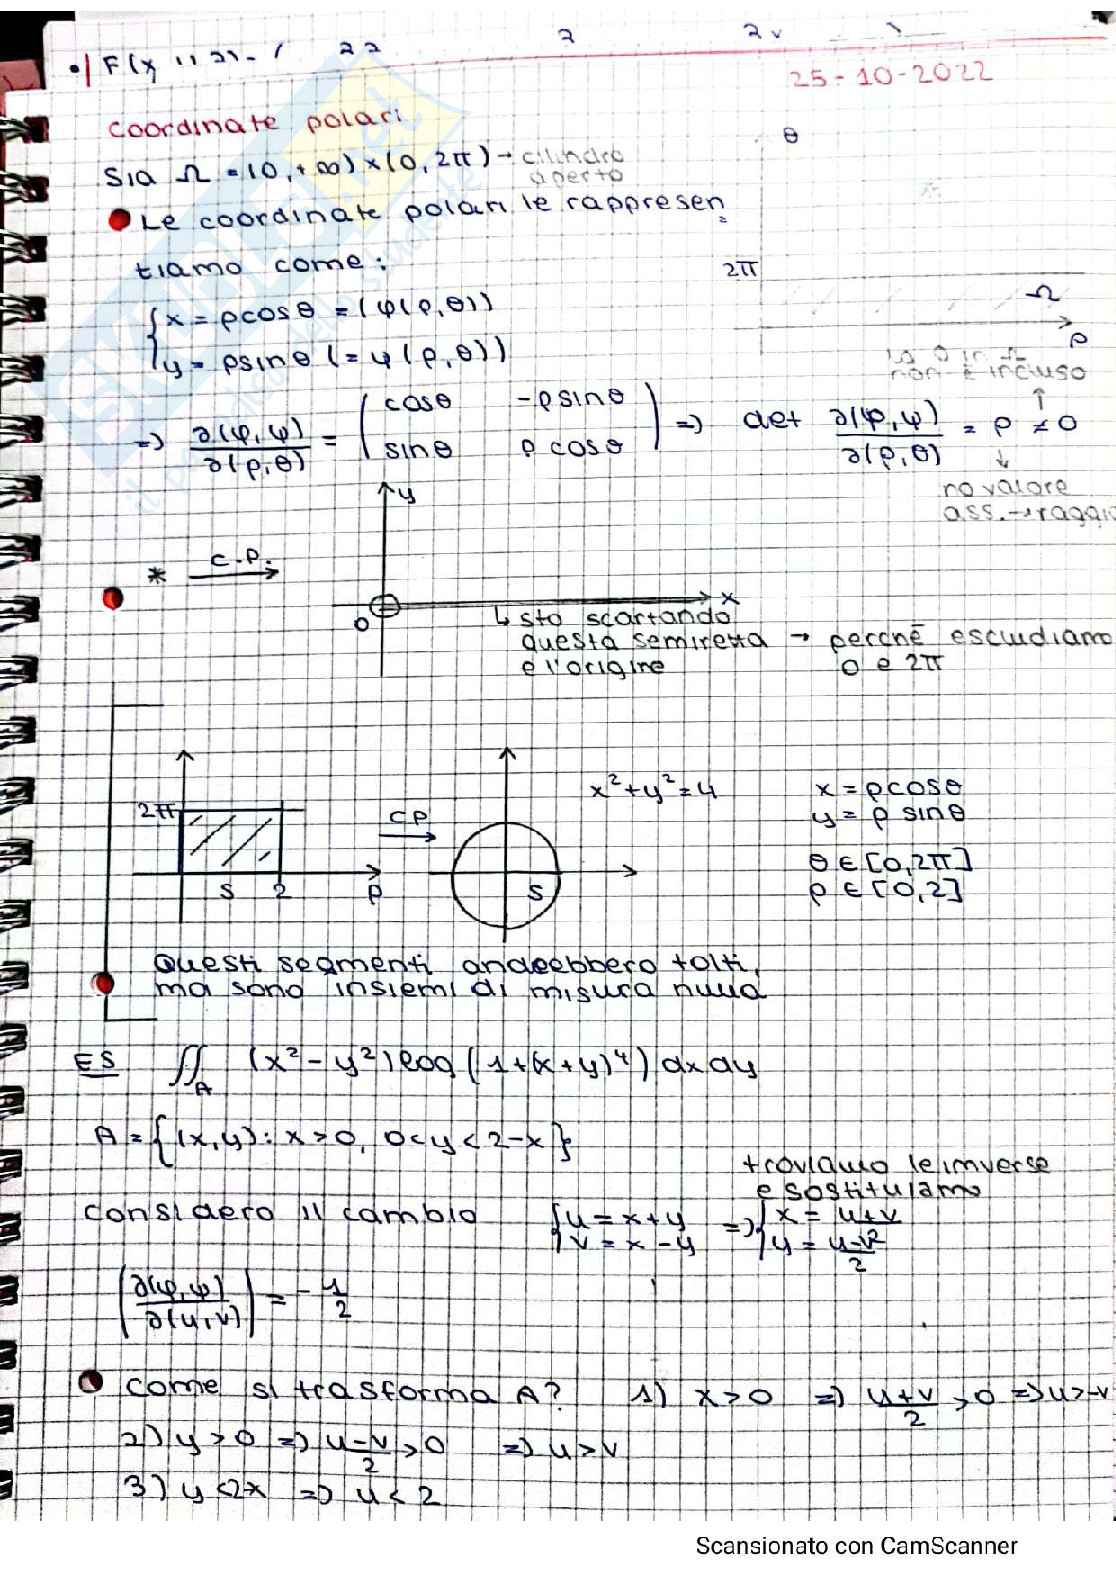 25-10-2022
Coordinate polari
Sia Ω = (0,+∞)×(0,2π) → cilindro aperto
θ
Le coordinate polari le rappresen=
tiamo come:
2π
Ω
ρ
{x = ρcosθ = (φ(ρ,θ))
{y = ρsinθ (= ψ(ρ,θ))
lo 0 in Ω
non è incluso
=> ∂(φ,ψ)/∂(ρ,θ) = (cosθ -ρsinθ
sinθ ρcosθ) => det ∂(φ,ψ)/∂(ρ,θ) = ρ ≠ 0
no valore
ass. → raggio
y
* C.P. →
x
0
↳ sto scartando
questa semiretta → perchè escludiamo
e l'origine 0 e 2π
2π
S 2 ρ
CP →
S
x²+y²=4
x = ρcosθ
y = ρ sinθ
θ ∈ [0,2π]
ρ ∈ [0,2]
Questi segmenti andrebbero tolti,
ma sono insiemi di misura nulla
ES ∬_A (x²-y²)log(1+(x+y)⁴) dxdy
A = {(x,y): x>0, 0<y<2-x}
troviamo le inverse
e sostituiamo
Considero il cambio {u = x+y => {x = u+v/2
{v = x-y {y = u-v/2
|∂(φ,ψ)/∂(u,v)| = -1/2
Come si trasforma A? 1) x>0 => u+v/2 >0 => u>-v
2) y>0 => u-v/2 >0 => u>v
3) y<2x => u<2
Scansionato con CamScanner